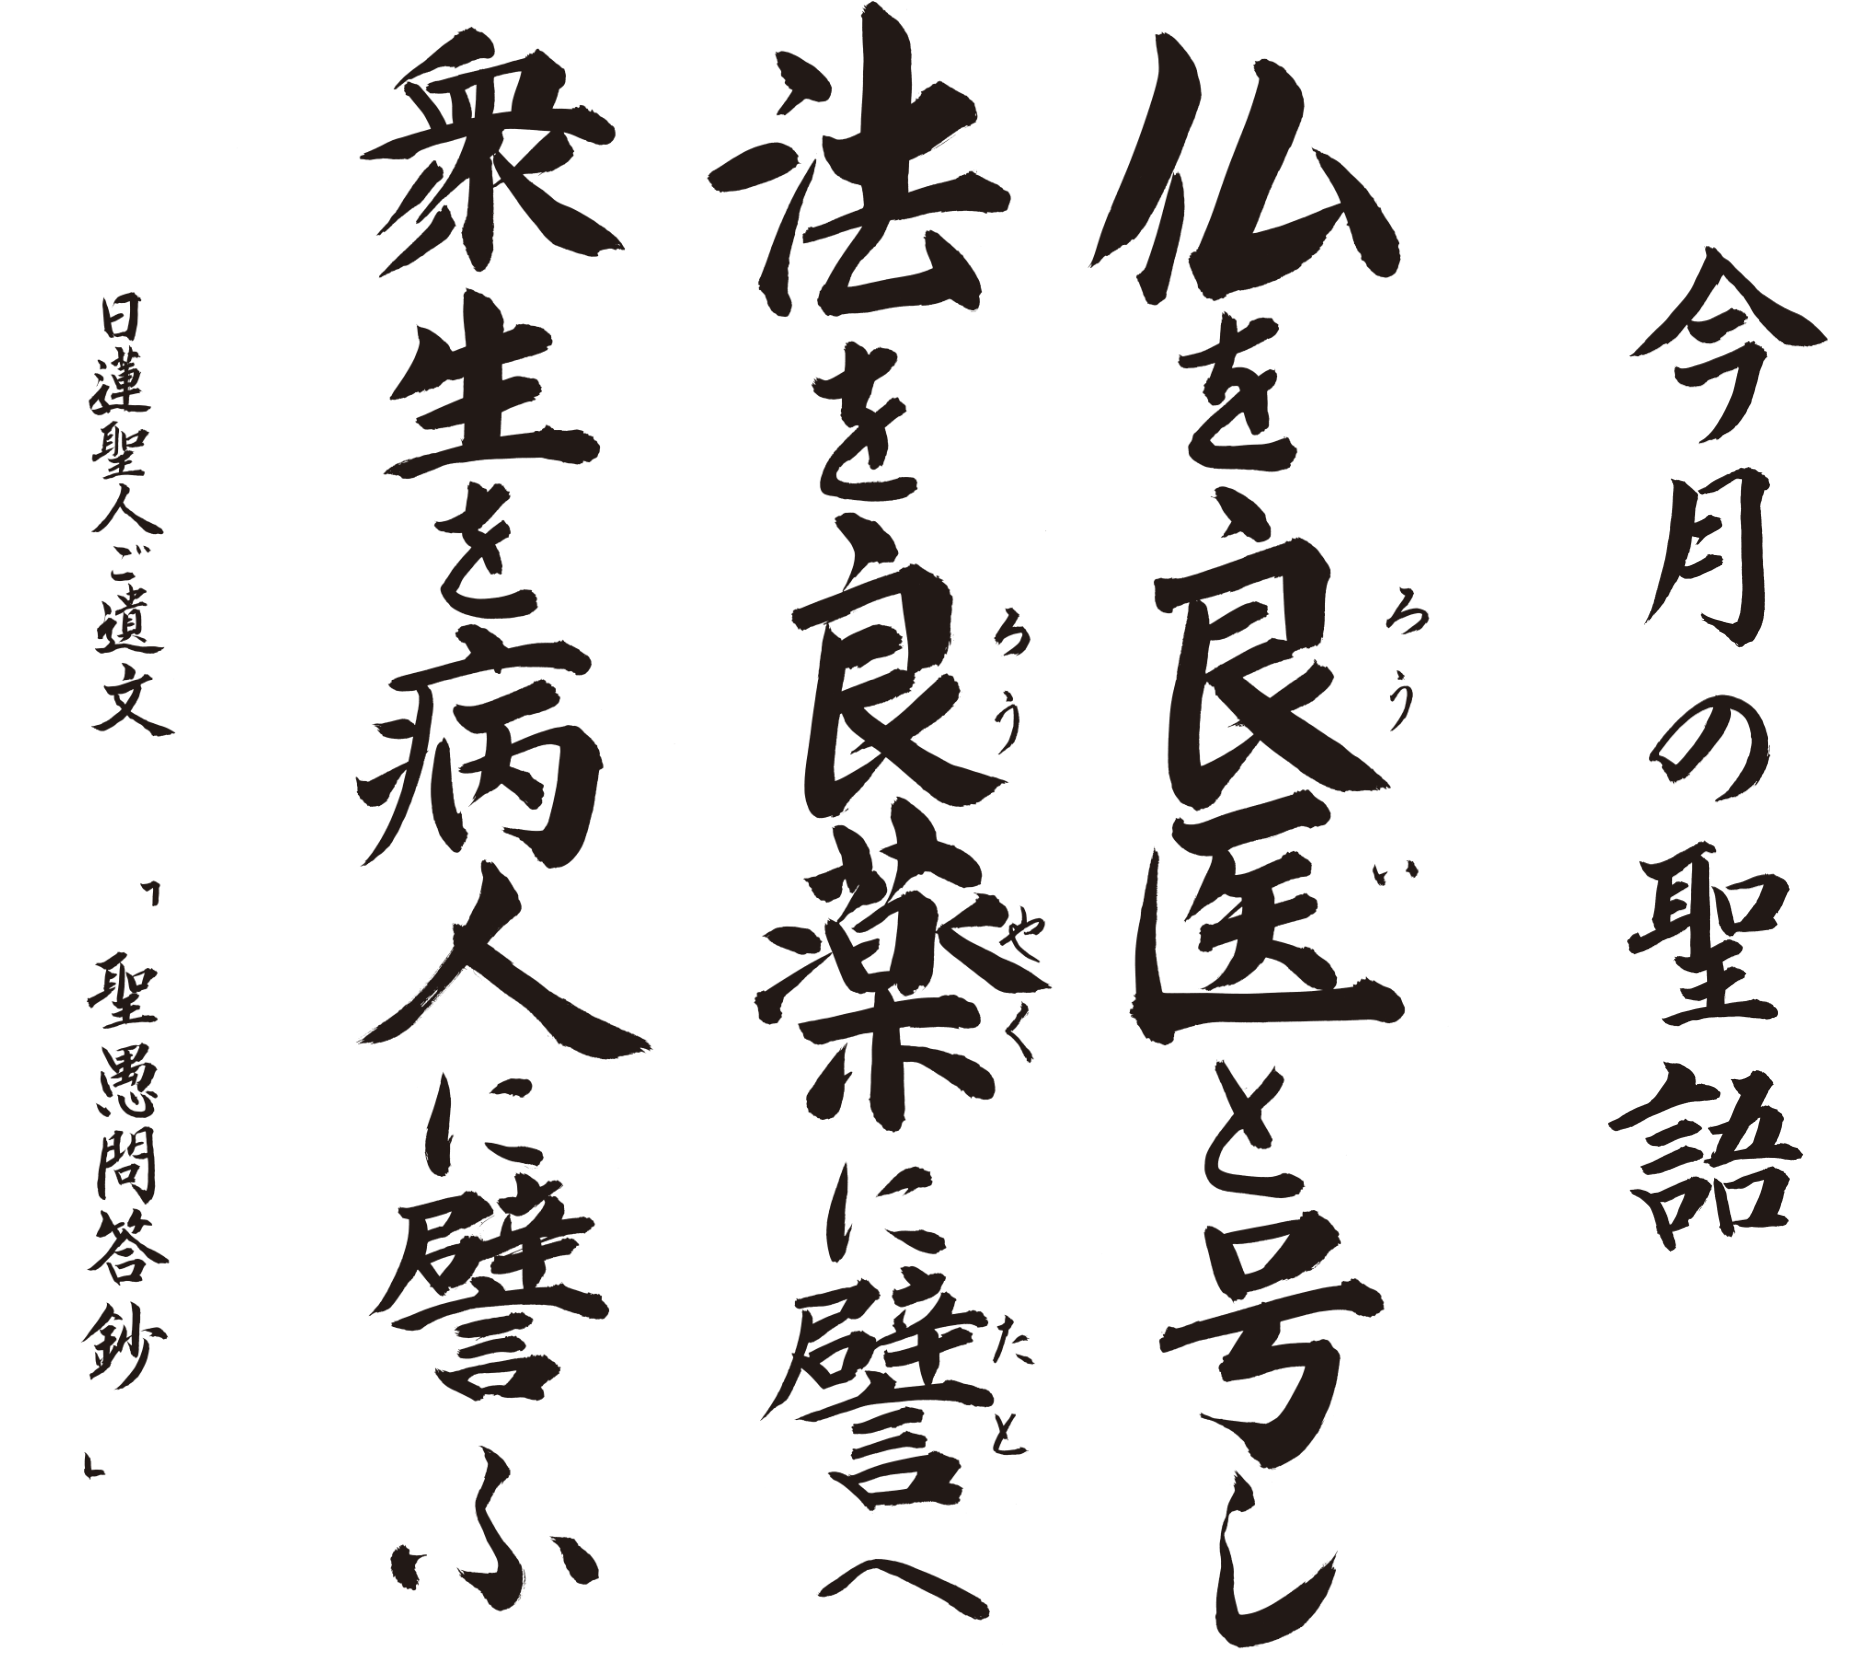 今月の聖語
仏を良医と号し
ろうい
法を良薬に譬へ
ろうやく たと
衆生を病人に譬ふ
日蓮聖人ご遺文 「聖愚問答鈔」